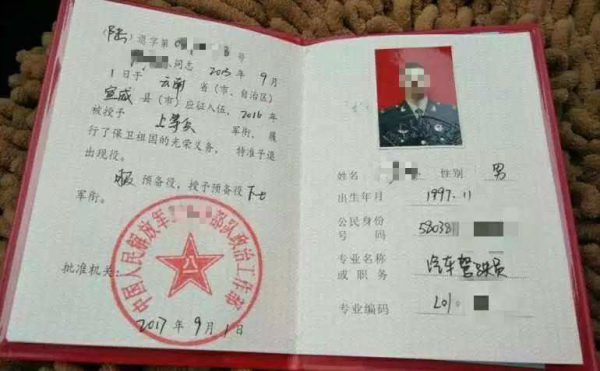 (陆)退字第0 号
同志 2015 年 9 月
1 日于 云南 省(市、自治区)
宣威 县(市)应征入伍, 2016 年
被授予 上等兵 军衔, 履
行了保卫祖国的光荣义务, 特准予退
出现役。
服 预备役, 授予预备役 下士
军衔。
中国人民解放军 部队政治工作部
批准机关:
2017 年 9 月 1 日
姓名 性别 男
出生年月 1997.11
公民身份
号 码
专业名称
或 职务 汽车驾驶员
专业编码 L01